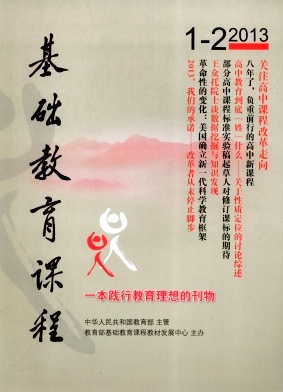 1-2 2013
关注高中课程改革走向
八年了，负重前行的高中新课程
高中教育到底“姓”什么——关于性质定位的讨论综述
部分高中课程标准实验稿起草人对修订课标的期待
王众托院士谈数据挖掘与知识发现
革命性的变化：美国确立新一代科学教育框架
2013，我们的承诺——改革者从未停止脚步
基础教育课程
一本践行教育理想的刊物
中华人民共和国教育部 主管
教育部基础教育课程教材发展中心 主办